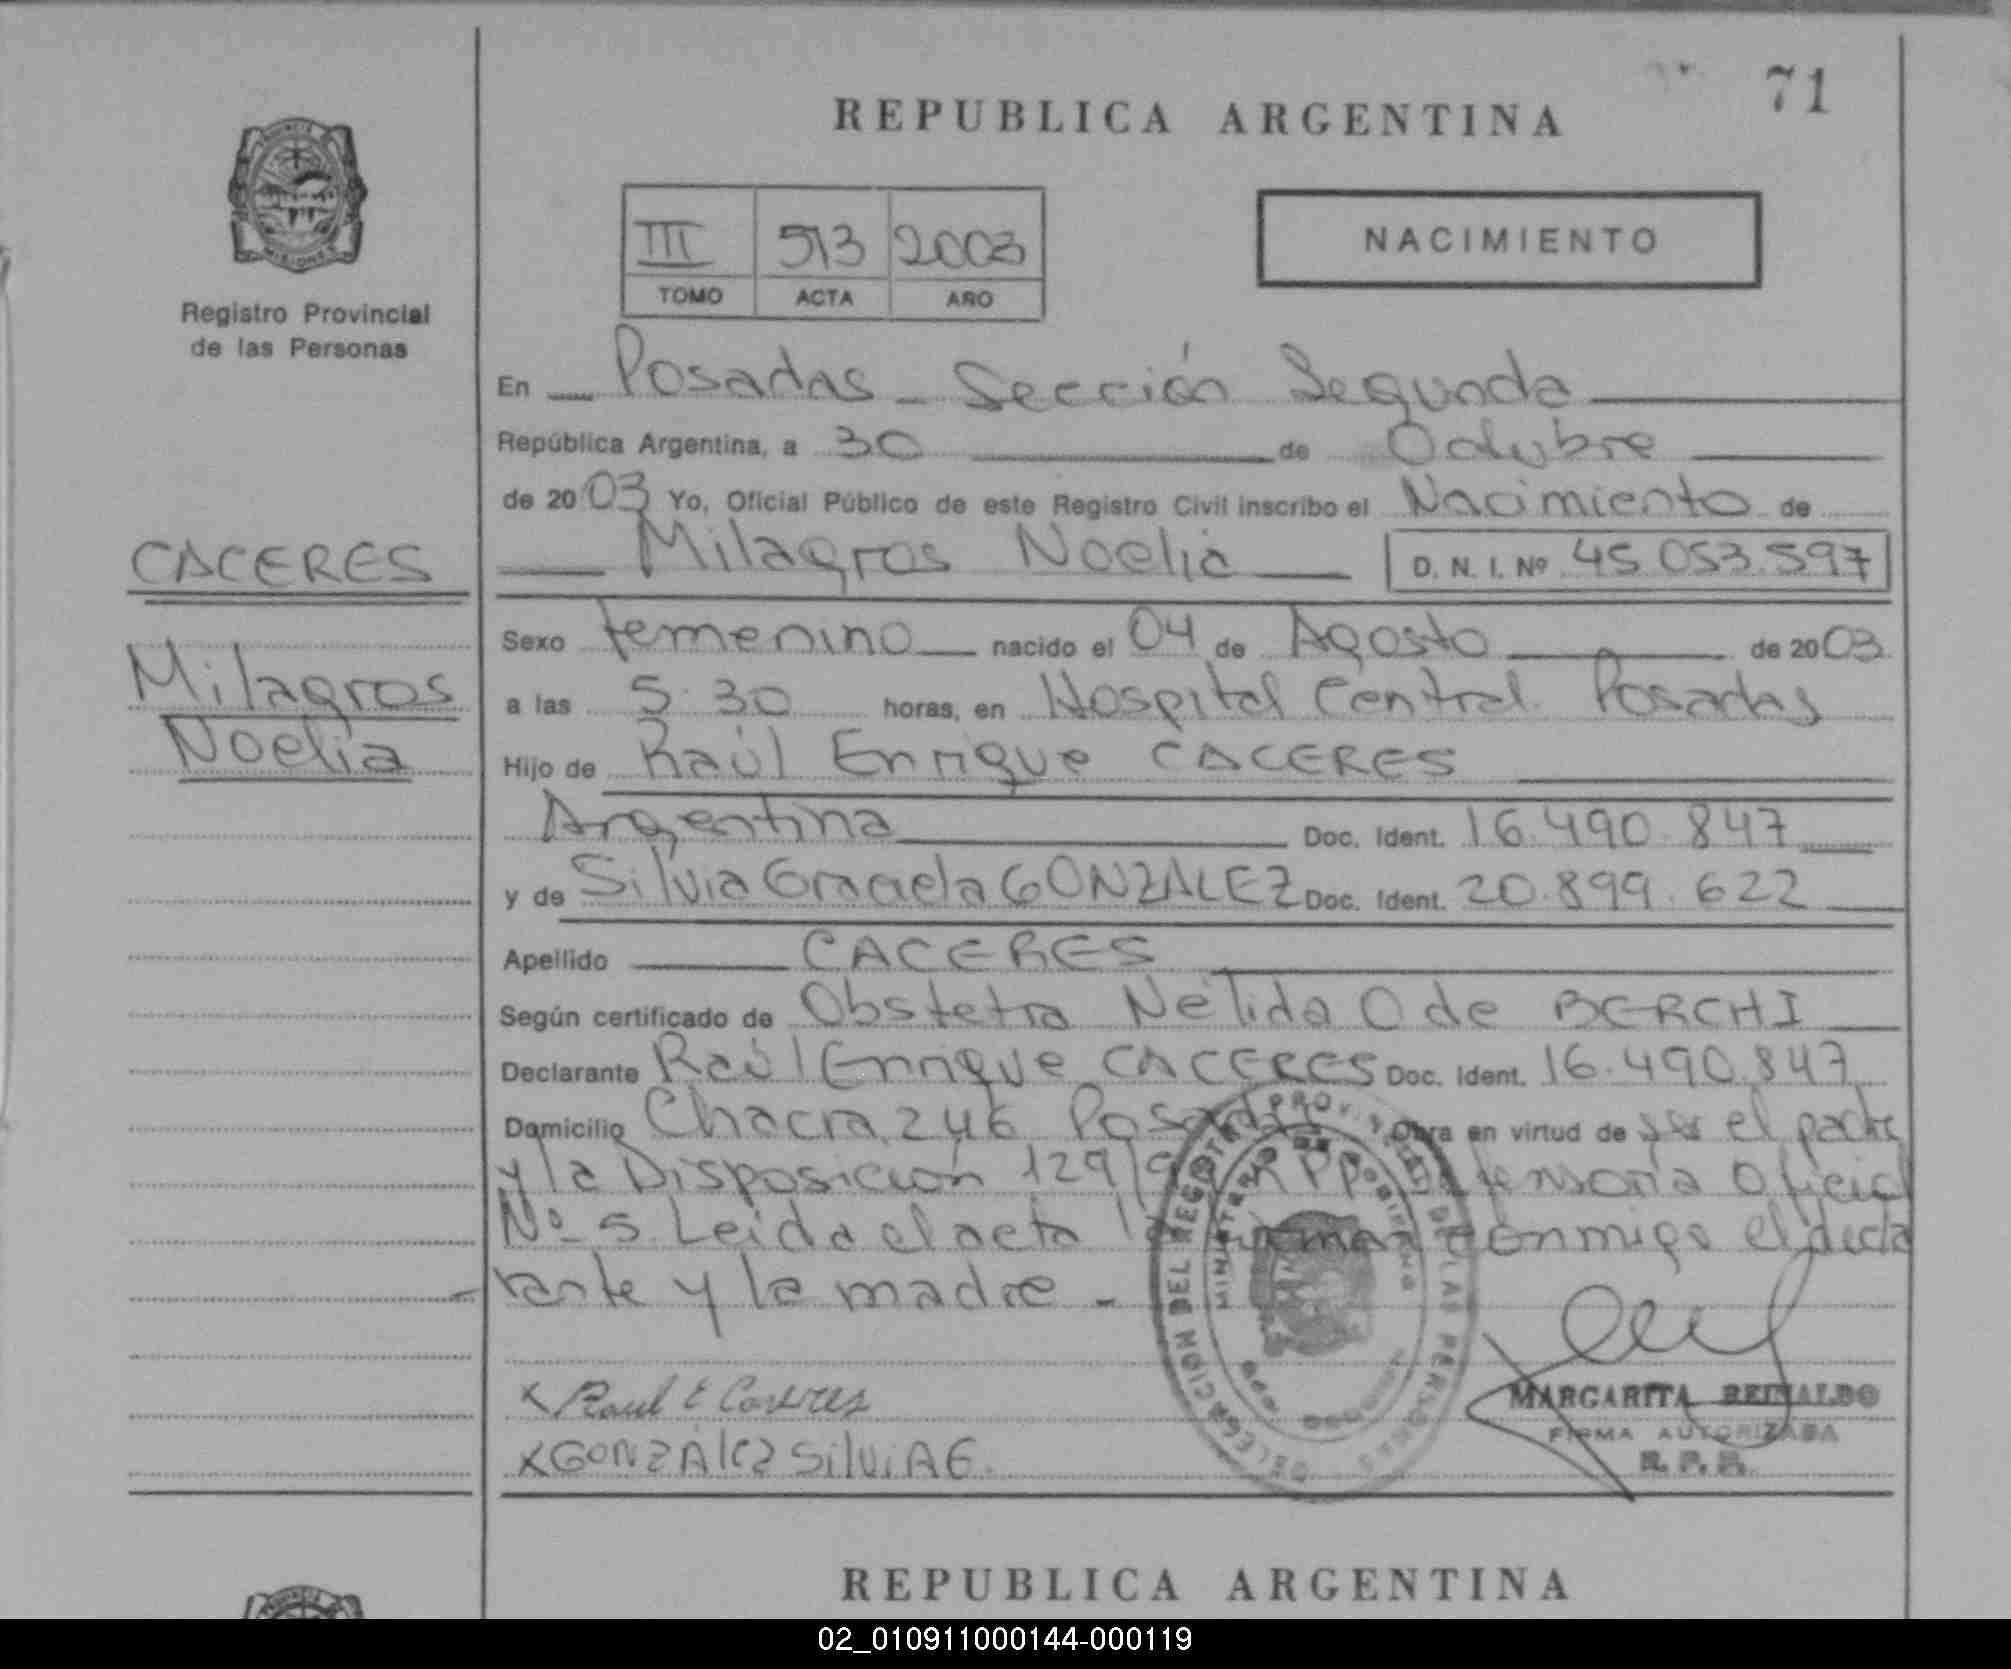 71
REPUBLICA ARGENTINA
III 513 2003
TOMO ACTA AÑO
NACIMIENTO
Registro Provincial
de las Personas
En Posadas - Sección Segunda
República Argentina, a 30 de Octubre
de 2003 Yo, Oficial Público de este Registro Civil inscribo el Nacimiento de
CACERES
Milagros Noelia D. N. I. Nº 45.053.597
Sexo femenino nacido el 04 de Agosto de 2003
Milagros
a las 5:30 horas, en Hospital Central. Posadas
Noelia
Hijo de Raúl Enrique CACERES
Argentina Doc. Ident. 16.490.847
y de Silvia Graciela GONZALEZ Doc. Ident. 20.899.622
Apellido CACERES
Según certificado de Obstetra Nélida O de BERCHI
Declarante Raúl Enrique CACERES Doc. Ident. 16.490.847
Domicilio Chacra 246 Posadas Obra en virtud de ser el padre
y la Disposición 129/9 RPP Defensoria Oficial
Nº 5. Leida el acta la firman conmigo el decla
rante y la madre -
x Raul E Caceres
x GONZALEZ SilviA G.
DELEGACION DEL REGISTRO PROVINCIAL DE LAS PERSONAS
MINISTERIO DE GOBIERNO
MARGARITA REINALDO
FIRMA AUTORIZADA
R. P. P.
REPUBLICA ARGENTINA
02_010911000144-000119